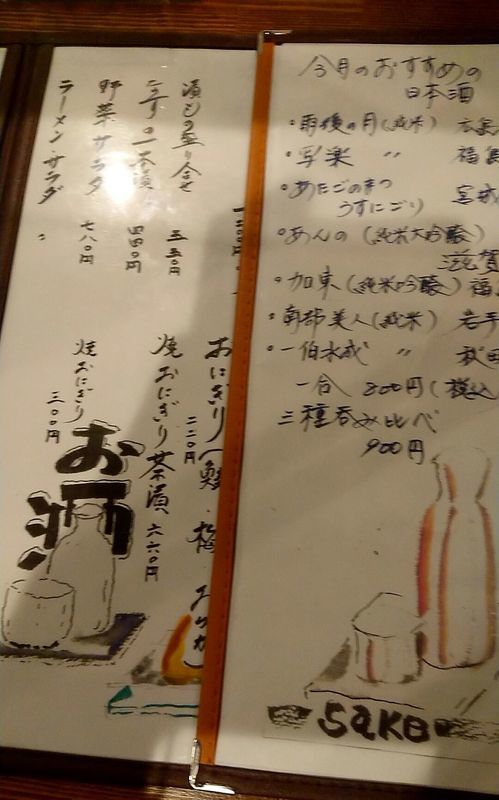 今月のおすすめの
日本酒
・雨後の月(純米) 広島
・写楽 〃 福島
・あたごのまつ
うすにごり 宮城
・あんの(純米大吟醸)
滋賀
・加東(純米吟醸)福
・南部美人(純米) 岩手
・一白水成 〃 秋田
一合 800円(税込
三種呑み比べ
900円
sake
漬もの盛り合せ 五五〇円
きゅうりの一本漬 四四〇円
野菜サラダ 七八〇円
ラーメンサラダ 〃
おにぎり(鮭 梅 おかか)
二二〇円
焼おにぎり茶漬 六六〇円
焼おにぎり
三〇〇円
お酒